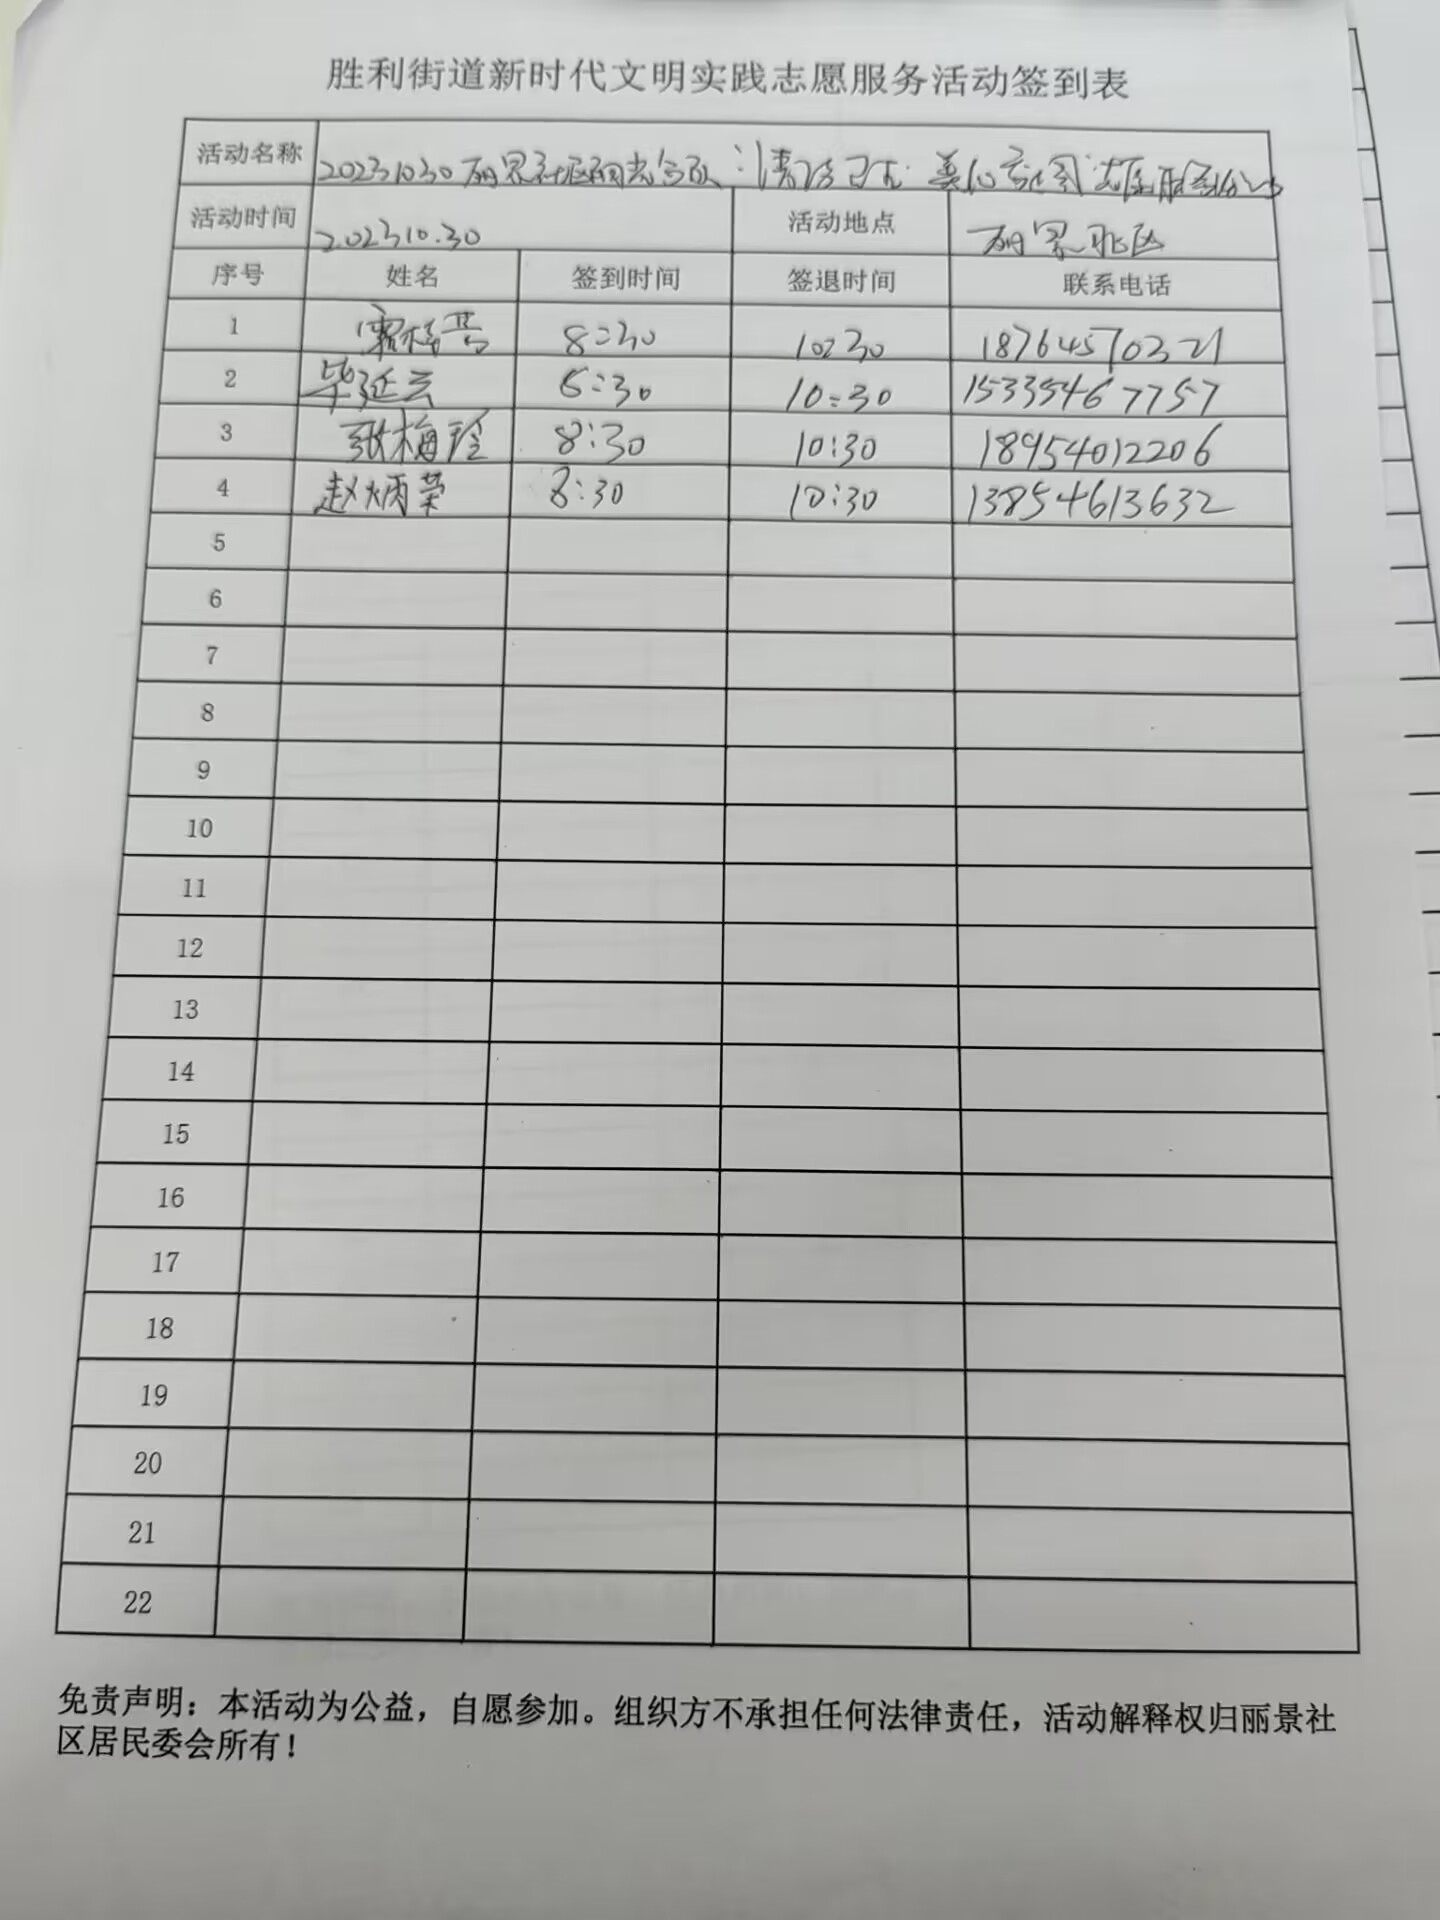 胜利街道新时代文明实践志愿服务活动签到表
活动名称 20231030丽景社区阳光分队:清洁卫生 美化家园志愿服务活动
活动时间 20231030 活动地点 丽景北区
序号 姓名 签到时间 签退时间 联系电话
1 8:30 10:30 18764570321
2 毕延云 8:30 10:30 15335467757
3 张梅玲 8:30 10:30 18954012206
4 赵炳荣 8:30 10:30 13854613632
5
6
7
8
9
10
11
12
13
14
15
16
17
18
19
20
21
22
免责声明：本活动为公益，自愿参加。组织方不承担任何法律责任，活动解释权归丽景社
区居民委会所有！